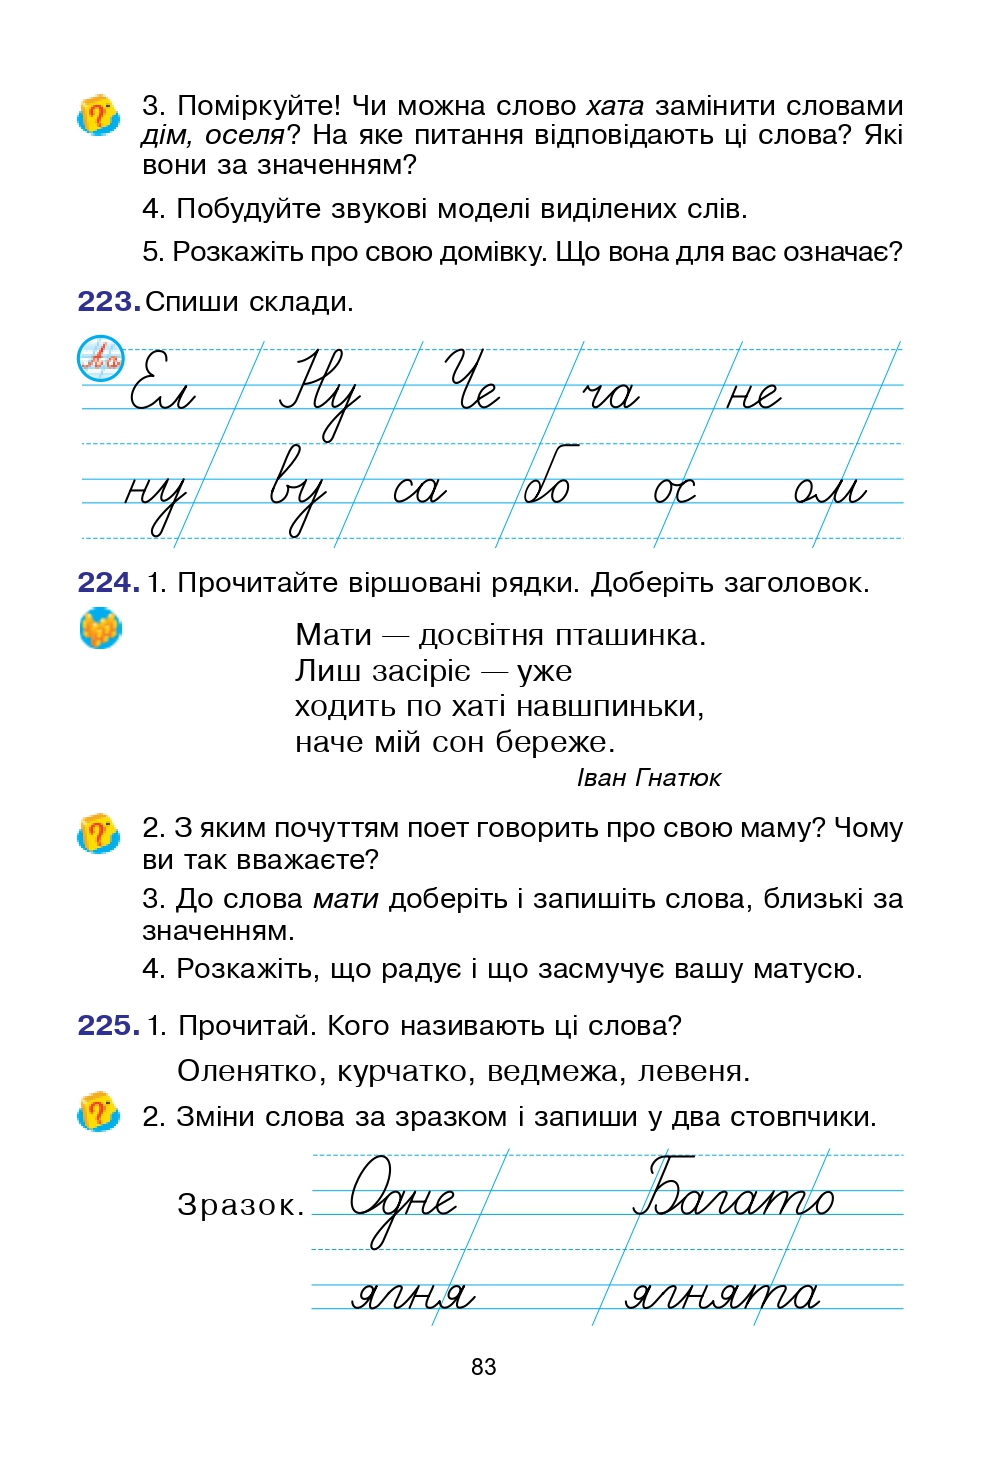 3. Поміркуйте! Чи можна слово хата замінити словами
дім, оселя? На яке питання відповідають ці слова? Які
вони за значенням?
4. Побудуйте звукові моделі виділених слів.
5. Розкажіть про свою домівку. Що вона для вас означає?
223. Спиши склади.
Аа
Ел Ну Че ча не
ну ву са бо ос ом
224. 1. Прочитайте віршовані рядки. Доберіть заголовок.
Мати — досвітня пташинка.
Лиш засіріє — уже
ходить по хаті навшпиньки,
наче мій сон береже.
Іван Гнатюк
2. З яким почуттям поет говорить про свою маму? Чому
ви так вважаєте?
3. До слова мати доберіть і запишіть слова, близькі за
значенням.
4. Розкажіть, що радує і що засмучує вашу матусю.
225. 1. Прочитай. Кого називають ці слова?
Оленятко, курчатко, ведмежа, левеня.
2. Зміни слова за зразком і запиши у два стовпчики.
Зразок. Одне Багато
ягня ягнята
83